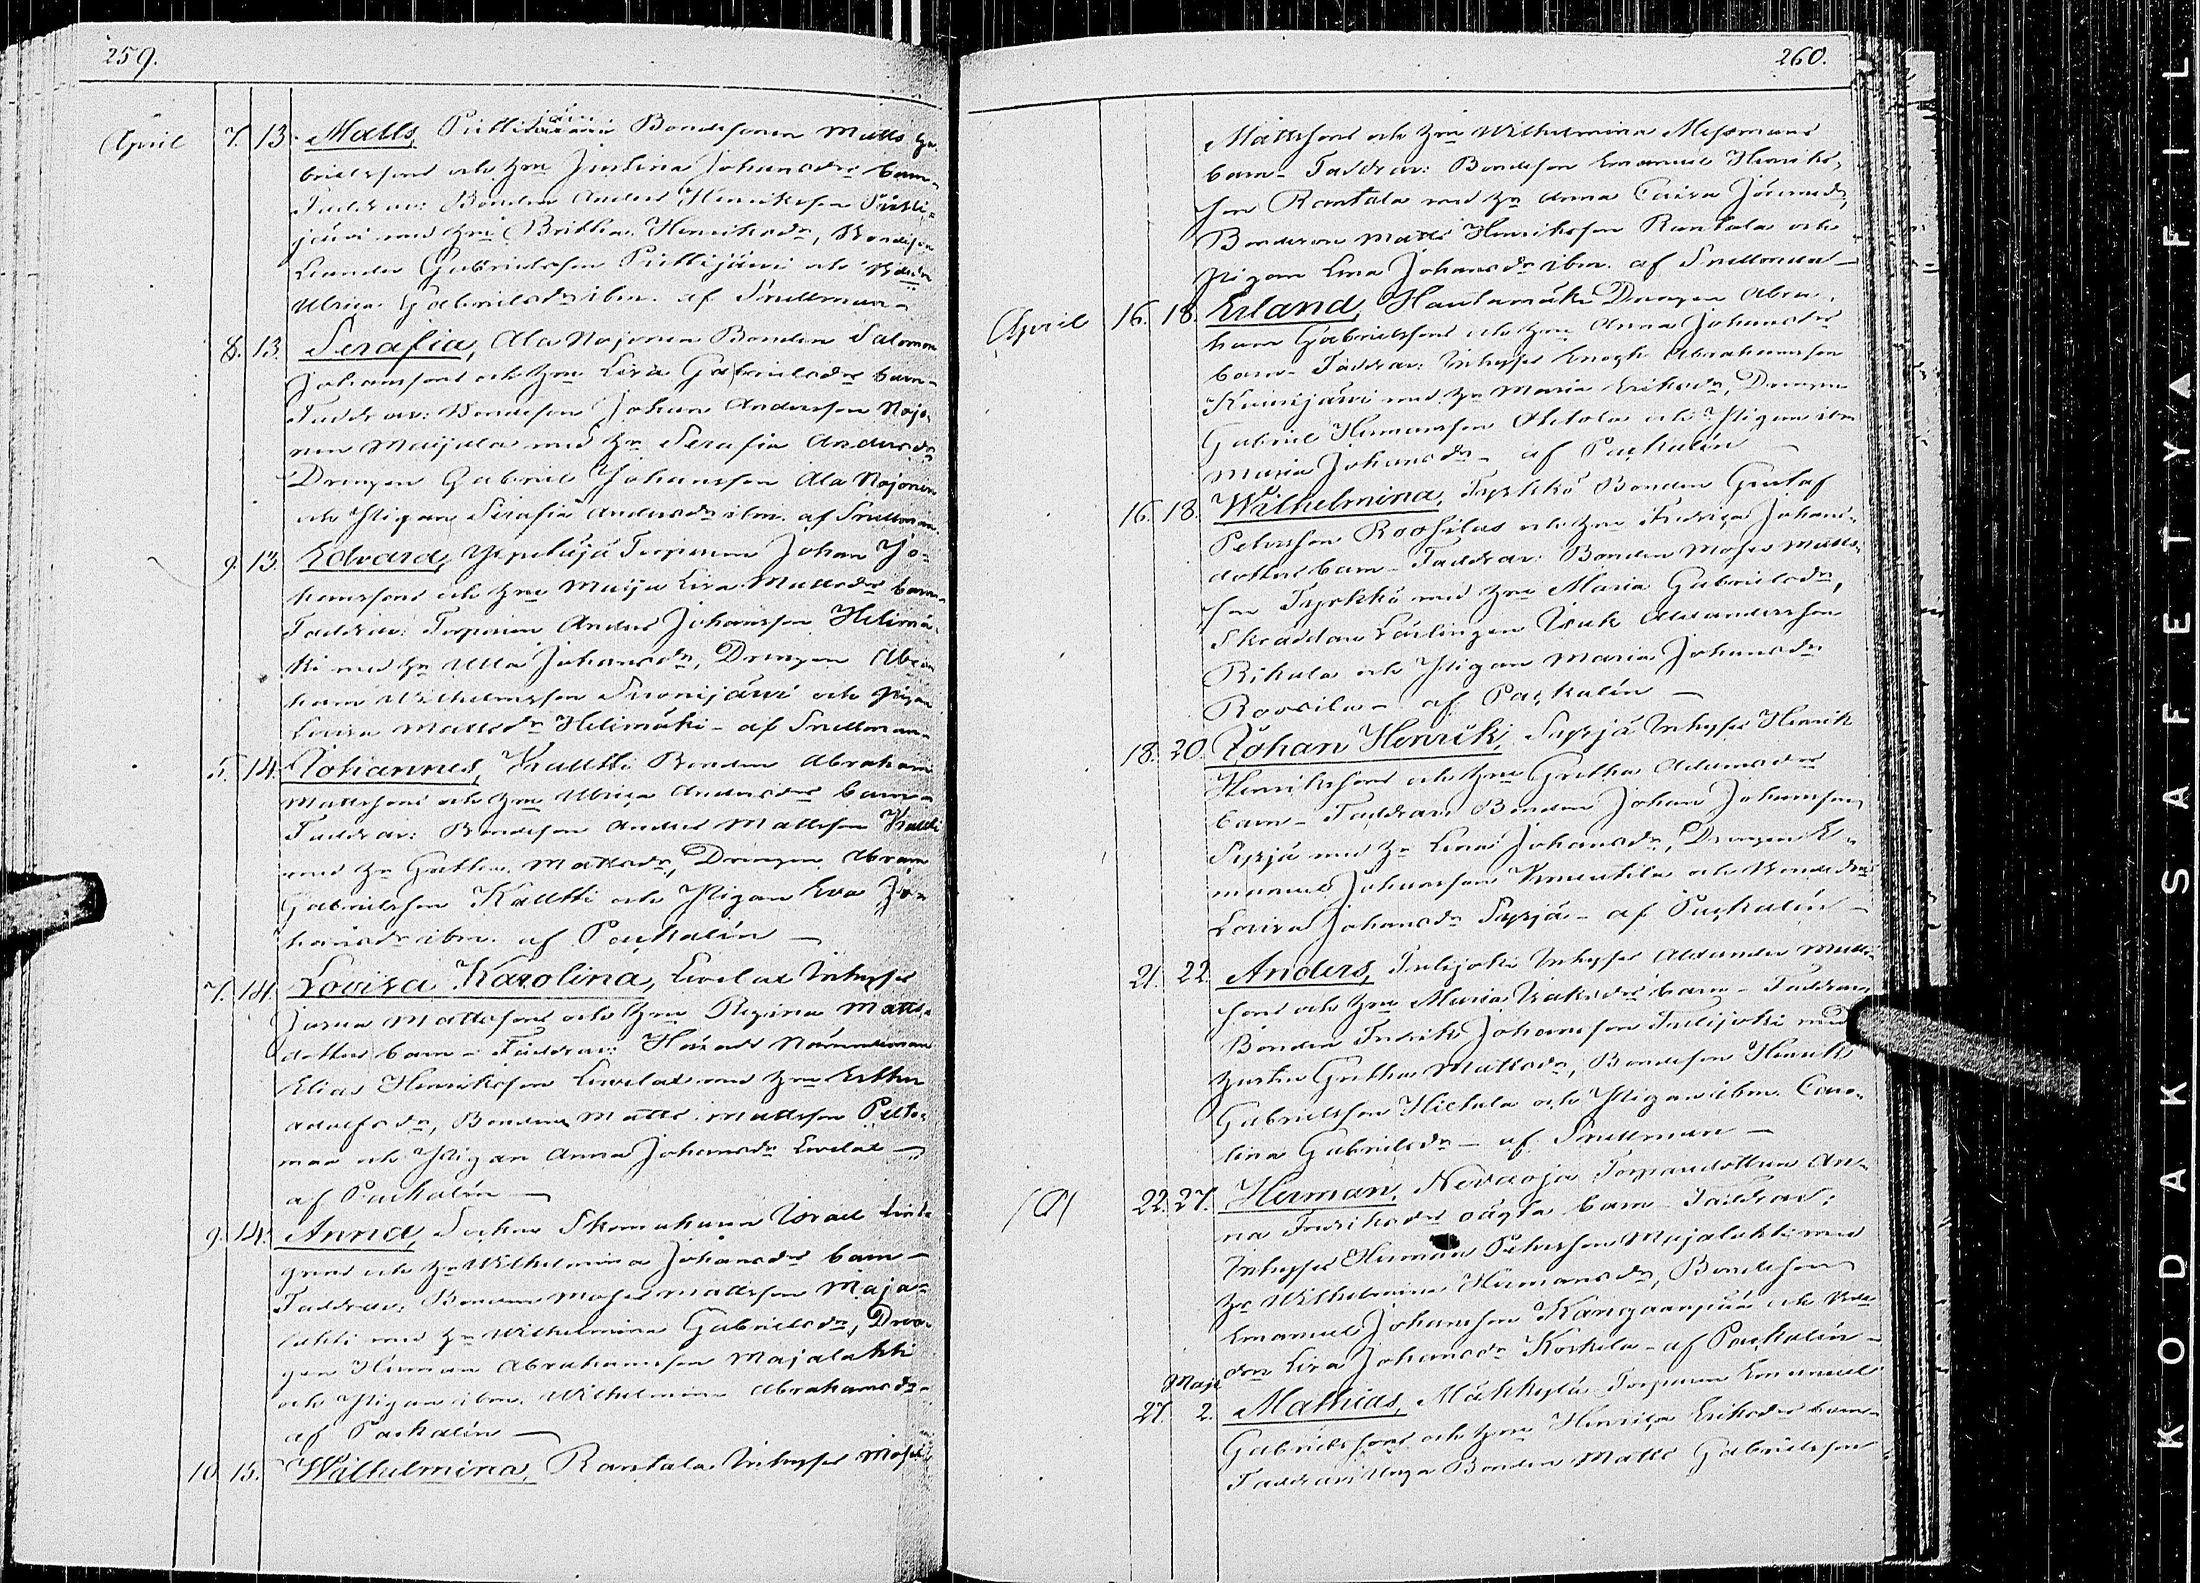 259.
April 7. 13. Matts, Pirttijärvi Bondesonen Matts Ga-
brielssons och hru Justina Johansdrs barn-
Faddrar: Bonden Anders Henriksson Pirtti-
järvi med hru Britha Henriksdr, Bondeson
Leander Gabrielsson Pirttijärvi och Bdedr
Ulrica Gabrielsdr ibm. af Snellman-
8. 13. Serafia, Ala Nojonen Bonden Salomon
Johanssons och hru Lisa Gabrielsdrs barn-
Faddrar: Bondeson Johan Andersson Nojo-
nen Maijala med hr Serafia Andersdr
Drengen Gabriel Johansson Ala Nojonen
och Pigan Serafia Andersdr ibm. af Snellman.
9. 13. Edvard, Torparen Johan Jo-
hanssons och hru Maija Lisa Mattsdrs barn-
Faddrar: Torparen Anders Johansson Helimä-
ki med hr Ulla Johansdr, Drengen Abra-
ham Wilhelmsson och Pigan
Lovisa Mattsdr Helimäki - af Snellman-
5. 14. Johannes, Kaltti Bonden Abraham
Mattssons och hru Ulrica Andersdrs barn-
Faddrar: Bondeson Anders Mattsson Kaltti
med hr Gretha Mattsdr, Drengen Abram
Gabrielsson Kaltti och Pigan Eva Jo-
hansdr ibm. af Pachalén -
7. 14. Lovisa Karolina, Inhyses
Mattssons och hru Regina Matts-
dotters barn - Faddrar: Härads Nämndeman
Elias Henriksson med hru Esther
Adolfsdr, Bonden Matts Mattsson Pelto-
maa och Pigan Anna Johansdr -
af Pachalén -
9. 14. Anna, Skomakaren Israel Lind-
grens och hr Wilhelmina Johansdrs barn -
Faddrar: Bonden Moses Mattsson Maja-
lahti med hr Wilhelmina Gabrielsdr, Dren-
gen Herman Abrahamsson Majalahti
och Pigan ibm. Wilhelmina Abrahamsdr -
af Pachalén -
10. 15. Wilhelmina, Rantala Inhyses Moses
260.
Mattssons och hru Wilhelmina
barn - Faddrar: Bondeson Emanuel Henriks-
son Rantala med hr Anna Caisa
Bondeson Matts Henriksson Rantala och
Pigan Lena Johansdr ibm. af Snellman -
April 16. 18. Erland, Hautamäki Drengen Abra-
ham Gabrielssons och hru Anna Johansdrs
barn - Faddrar: Inhyses Enoch Abrahamsson
med hr Maria Eriksdr, Drengen
Gabriel Hermansson Ahtola och Pigan ibm
Maria Johansdr - af Pachalén -
16. 18. Wilhelmina, Typpö Bonden Gustaf
Petersson Roosilas och hru Fredrica Johans-
dotters barn - Faddrar: Bonden Moses Matts-
son med hru Maria Gabrielsdr,
Skräddare Lärlingen Isak Alexandersson
Rikala och Pigan Maria Johansdr
Roosila - af Pachalén -
18. 20. Johan Henrik, Inhyses Henrik
Henrikssons och hru Gretha Adamsdrs
barn - Faddrar: Bonden Johan Johansson
med hr Lena Johansdr, Drengen E-
manuel Johansson och Bondedr
Lovisa Johansdr - af Pachalén -
21. 22. Anders, Inhyses Alexander Matts-
sons och hru Maria Isaksdrs barn - Faddrar:
Bonden Fredrik Johansson med
hustru Gretha Mattsdr, Bondeson Henrik
Gabrielsson Hietala och Pigan ibm. Caro-
lina Gabrielsdr - af Snellman -
22. 27. Herman, Nevaoja Torparedottren An-
na Fredriksdrs oägta barn - Faddrar:
Inhyses Herman Petersson Majalahti med
hr Wilhelmina Hermansdr, Bondeson
Emanuel Johansson Kangaanpää och Bde-
dr Lisa Johansdr Koskela - af Pachalén -
Maji
27. 2. Mathias, Mäkkylä Torparen Emanuel
Gabrielssons och hru Henrica Eriksdrs barn -
Faddrar: Unga Bonden Matts Gabrielsson
KODAK SAFETY ▲ FIL